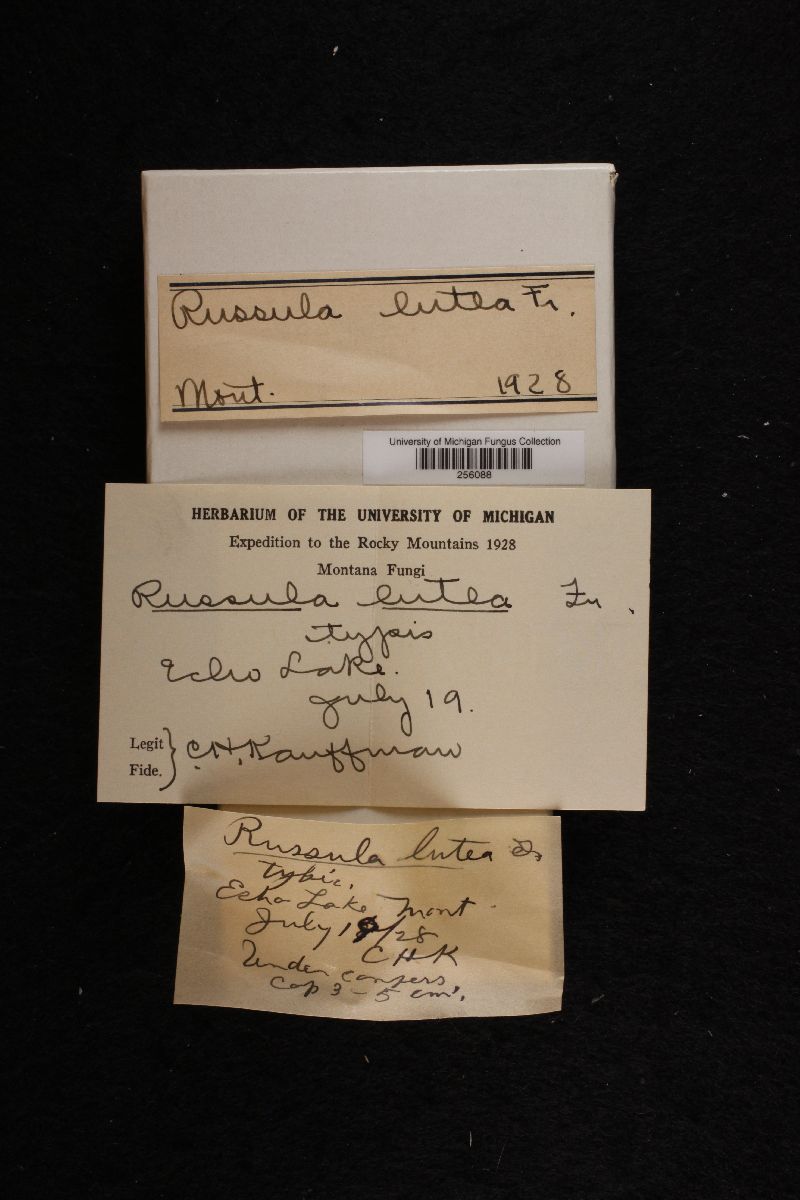 Russula lutea Fr.
Mont. 1928
University of Michigan Fungus Collection
256088
HERBARIUM OF THE UNIVERSITY OF MICHIGAN
Expedition to the Rocky Mountains 1928
Montana Fungi
Russula lutea Fr.
typis
Echo Lake.
July 19.
Legit
Fide. } C.H. Kauffman
Russula lutea Fr
typic.
Echo Lake, Mont.
July 19/28
CHK
Under conifers
Cap 3-5 cm.